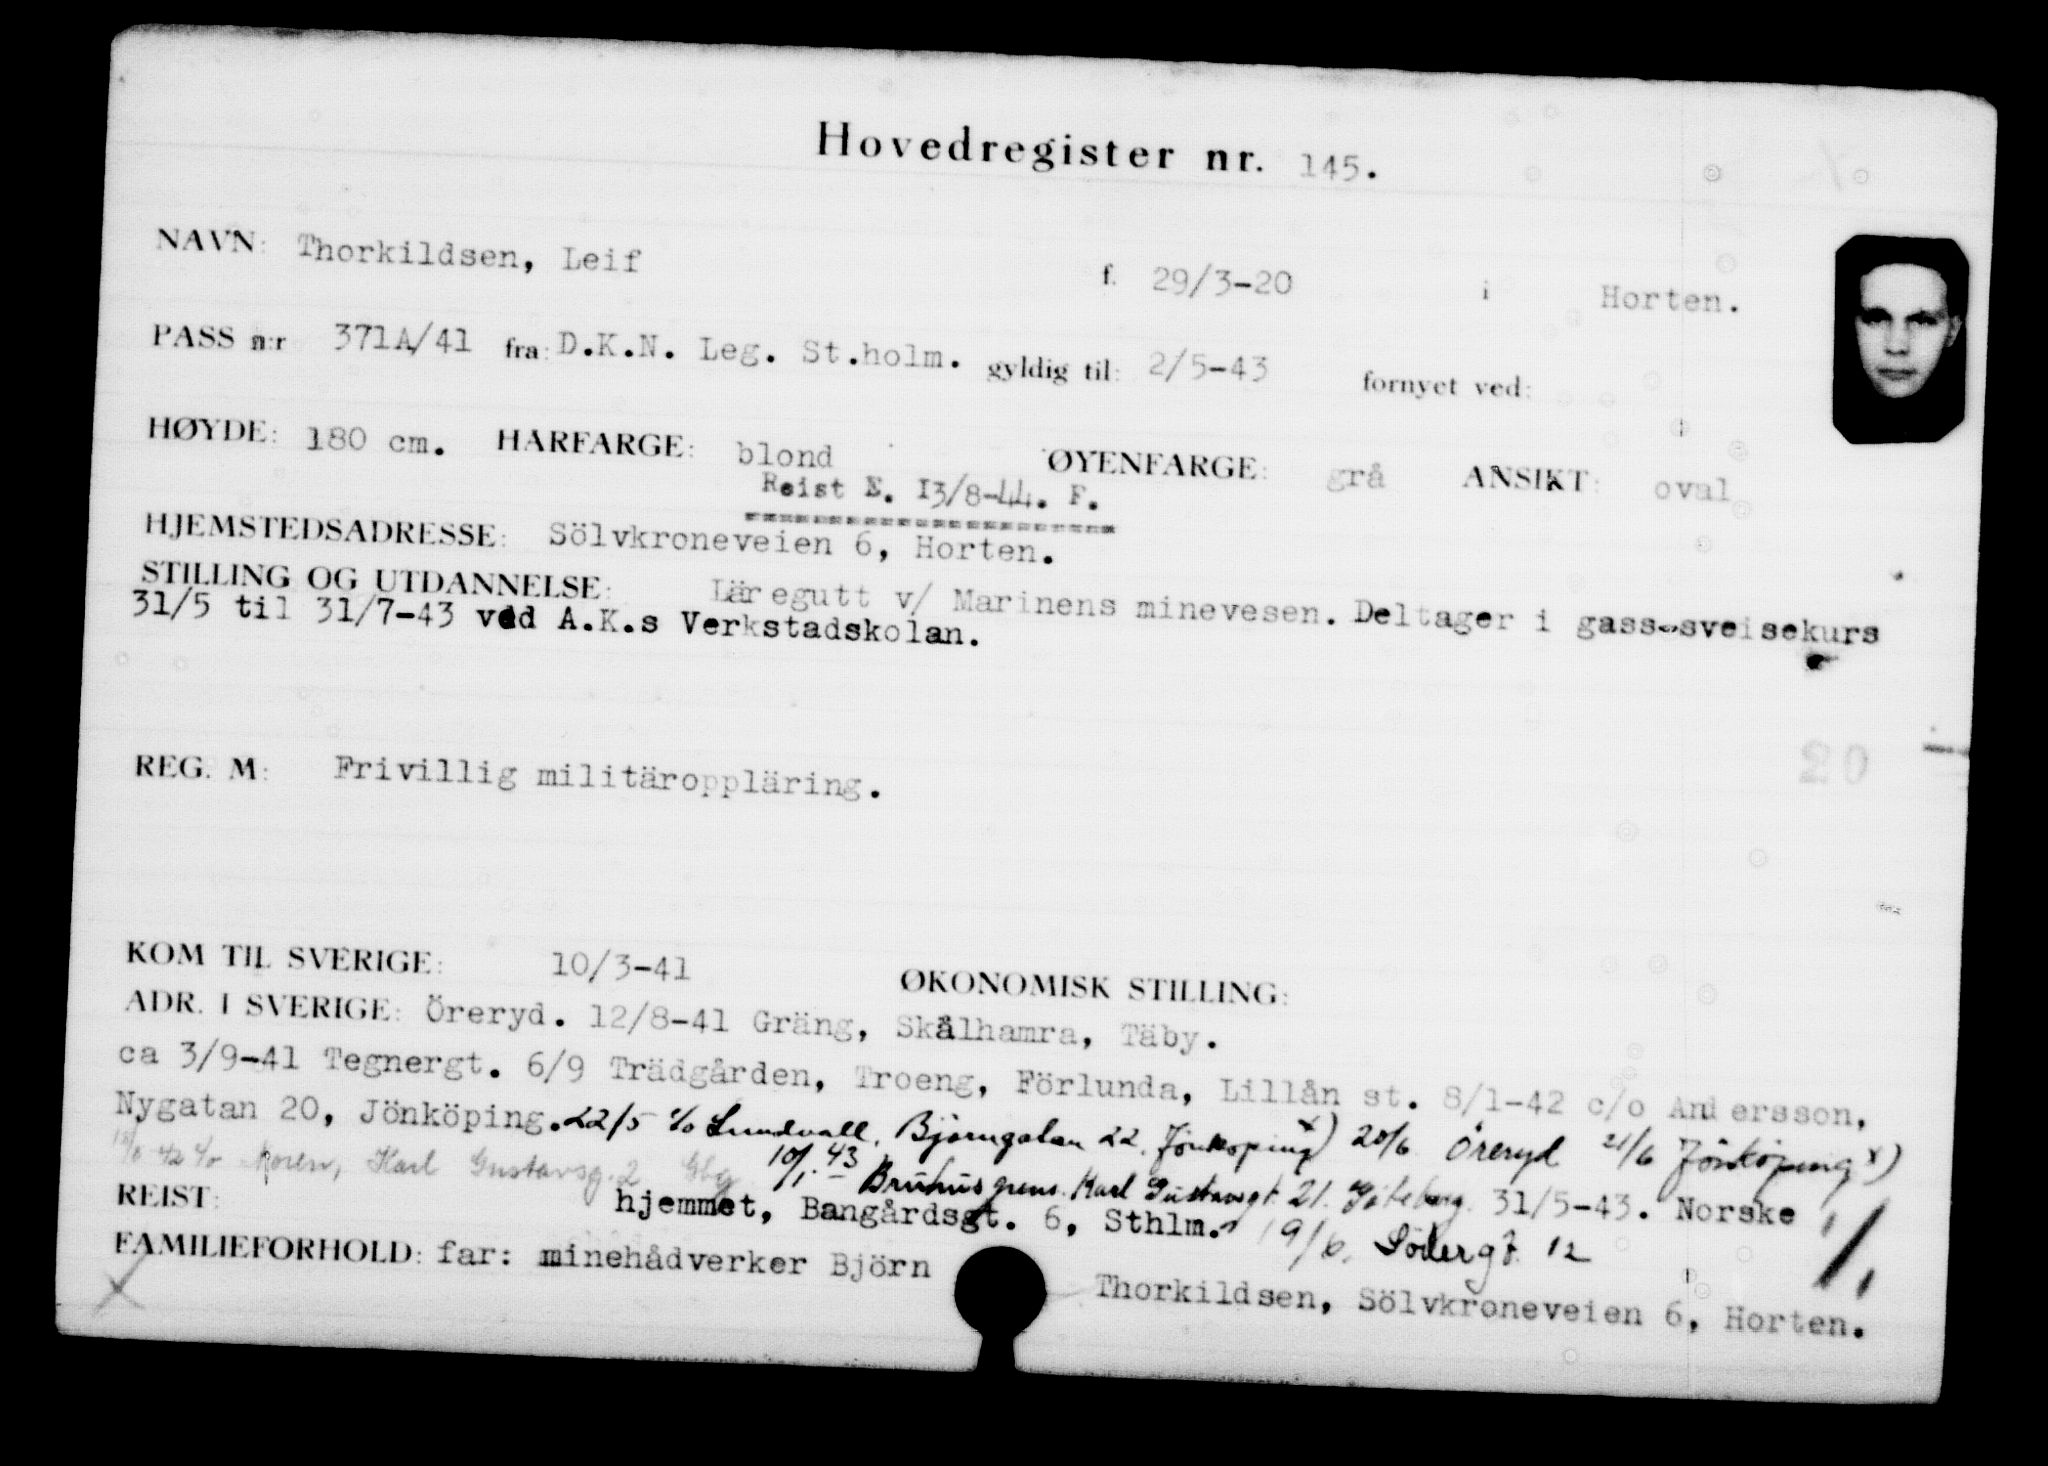 Hovedregister nr. 145.
NAVN: Thorkildsen, Leif f. 29/3-20 i Horten.
PASS n:r 371A/41 fra: D.K.N. Leg. St.holm. gyldig til: 2/5-43 fornyet ved:
HØYDE: 180 cm. HÅRFARGE: blond ØYENFARGE: grå ANSIKT: oval
Reist E. 13/8-44. F.
HJEMSTEDSADRESSE: Sölvkroneveien 6, Horten.
STILLING OG UTDANNELSE: Läregutt v/ Marinens minevesen. Deltager i gass-sveisekurs
31/5 til 31/7-43 ved A.K.s Verkstadskolan.
20
REG. M: Frivillig militäroppläring.
KOM TIL SVERIGE: 10/3-41 ØKONOMISK STILLING:
ADR. I SVERIGE: Öreryd. 12/8-41 Gräng, Skålhamra, Täby.
ca 3/9-41 Tegnergt. 6/9 Trädgården, Troeng, Förlunda, Lillån st. 8/1-42 c/o Andersson,
Nygatan 20, Jönköping. 22/5 c/o Lundvall, Björngatan 22, Jönköping x) 20/6 Öreryd 21/6 Jönköping x)
42 c/o Karl Gustavsg. 2 Gbg 10/1 43 Karl Gustavsgt 21. Göteborg. 31/5-43. Norske
REIST: hjemmet, Bangårdsgt. 6, Sthlm. 19/6. Södergt. 12
FAMILIEFORHOLD: far: minehådverker Björn Thorkildsen, Sölvkroneveien 6, Horten.